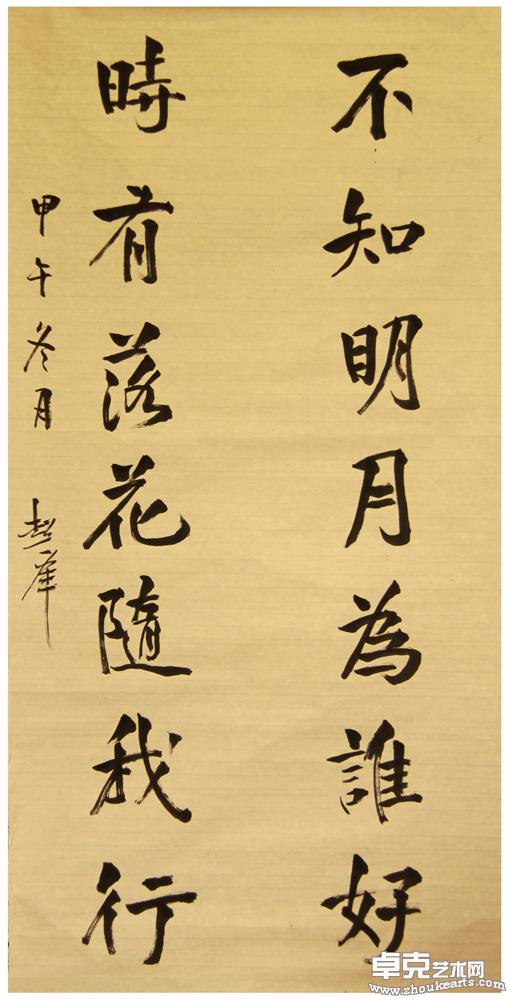 不知明月為誰好
時有落花隨我行
甲午冬月
卓克艺术网
www.zhoukearts.com